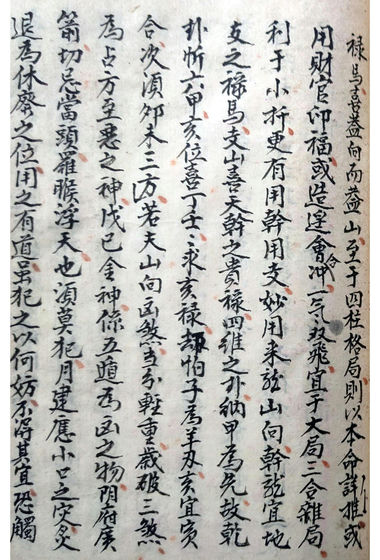 祿馬喜益向而益山至于四柱格局則以本命詳推或
用財官印福或造運會合冲一氣双飛宜于大局三合雜局
利于小折更有用幹用支妙用来龍山向幹龍宜地
支之祿馬支山喜天幹之貴祿四維之卦納甲為先故乾
卦忻六甲亥位喜丁壬三求亥祿却怕子為羊刃亥宜寅
合次須夘未三方若夫山向凶煞当分輕重歲破三煞
為占方至悪之神戊己金神係五道為凶之物阴府廣
箭切忌當頭羅睺浮天也須莫犯月建應小口之灾炙
退為休廢之位用之有道虽犯之以何妨不得其宜恐觸